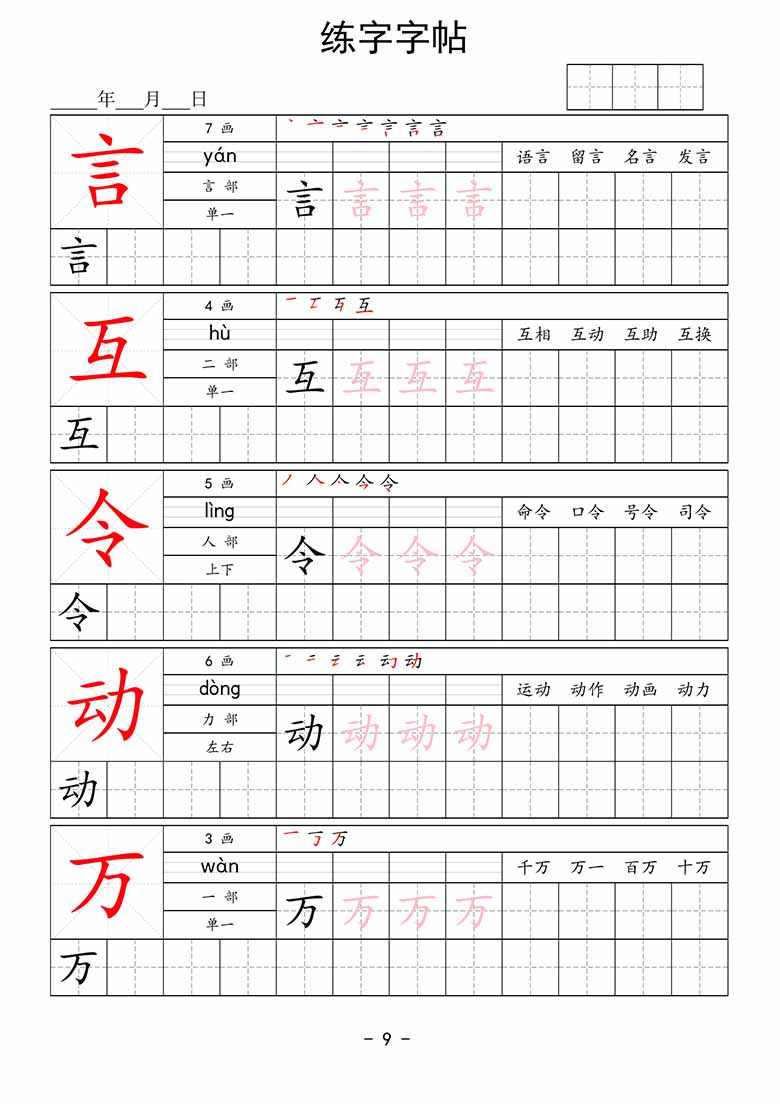 练字字帖
_____年___月___日
言 7 画
yán 语言 留言 名言 发言
言 部 言 言 言 言
单一
言
互 4 画
hù 互相 互动 互助 互换
二 部 互 互 互 互
单一
互
令 5 画
lìng 命令 口令 号令 司令
人 部 令 令 令 令
上下
令
动 6 画
dòng 运动 动作 动画 动力
力 部 动 动 动 动
左右
动
万 3 画
wàn 千万 万一 百万 十万
一 部 万 万 万 万
单一
万
- 9 -